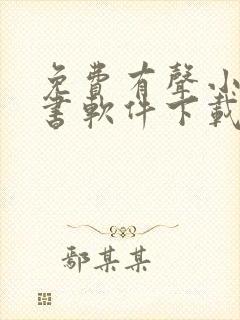 免費有聲小
書軟件下載
鄢某某